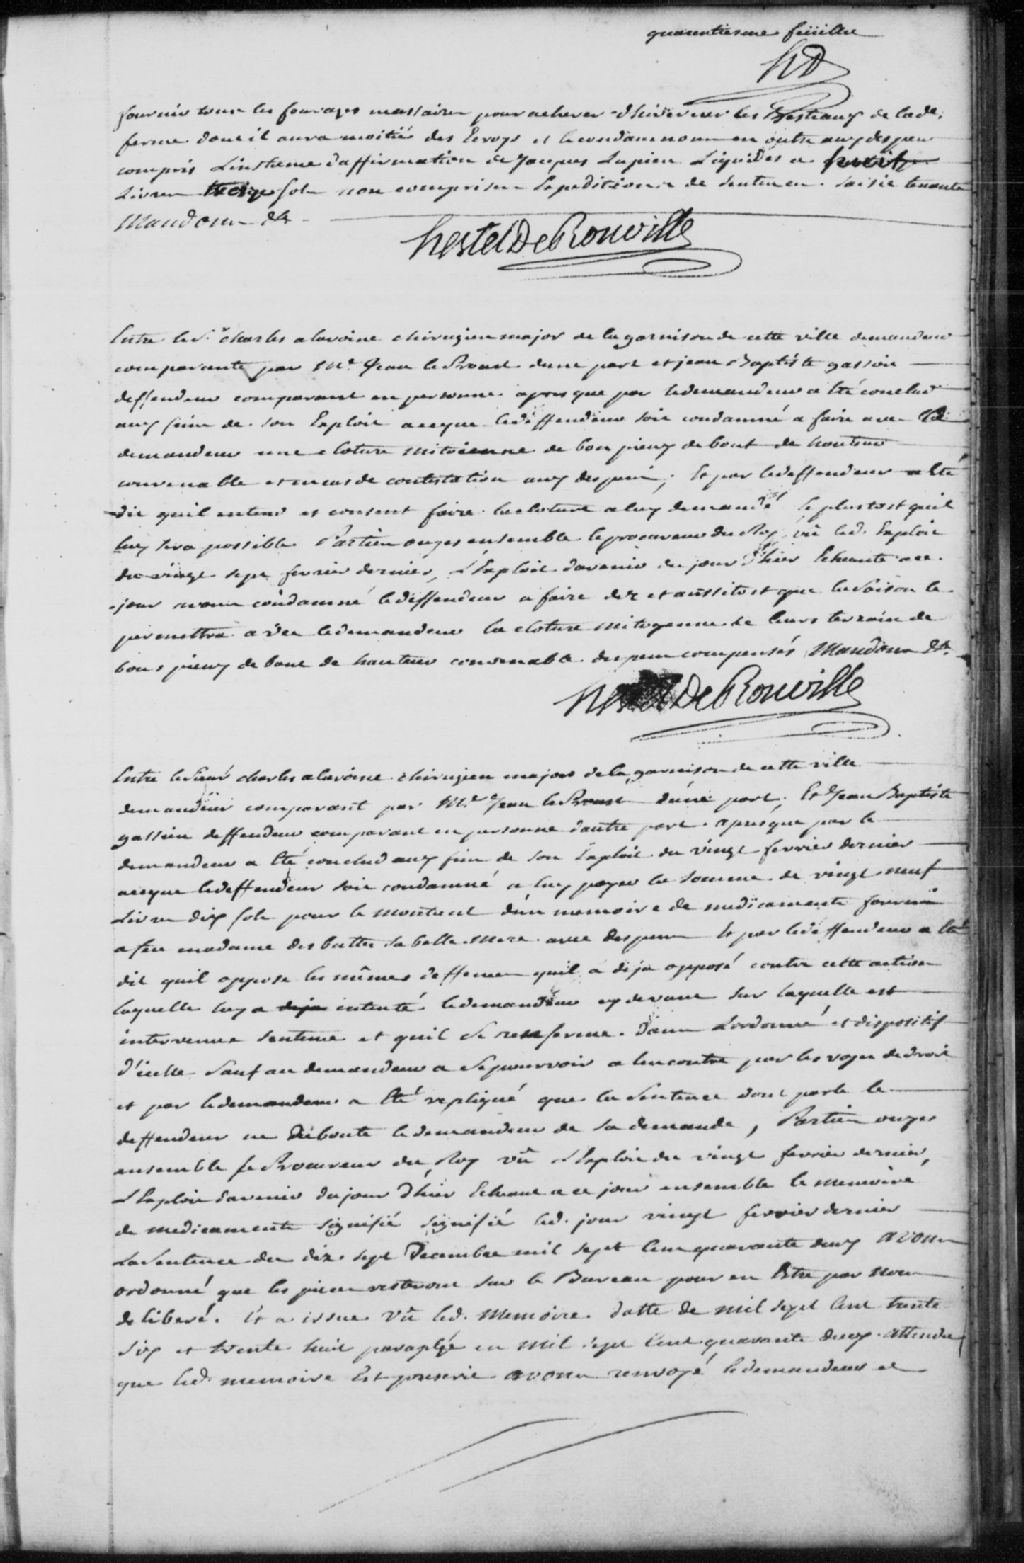 quarantiesme feüillet
hD
fournir tous les fourages necessaires pour achever d'hiverner les Bestiaux de lade.
ferme dont il aura moitié des Croys et le condamnons en outre aux despens
compris L'instance d'affirmation de Jacques Lupien Liquidés a
Livres treize sols non comprises Expeditions de Sentence. saisie tenante
Mandons &c
hertel De Rouville
Entre le Sr. charles alavoine chirurgien major de la garnison de cette ville demandeur
comparante par Me. Jean le Proust dune part et jean Baptiste gastien
deffendeur comparant en personne. apres que par le demandeur a Eté conclud
aux fins de son Exploit aceque ledeffendeur soit condamné a faire avec le
demandeur une cloture mitoienne de bon pieux de bout de hauteur
convenable et en cas de contestation aux despens; Et par ledeffendeur a Eté
dit quil entend et consent faire la cloture a luy demandé le plustost quil
luy sera possible. Parties ouyes ensemble le procureur du Roy, vû led. Exploit
du vingt sept fevrier dernier, L'Exploit davenir du jour d'hier Echeante a ce
jour avons condamné le deffendeur a faire et aussitost que la saison le
permettra avec le demandeur la cloture mitoyenne de leurs terrain de
bons pieux de bout de hauteur convenable. despens compensés Mandons &c.
hertel De Rouville
Entre le Sieur charles alavoine chirurgien major de la garnison de cette ville
demandeur comparant par Me. Jean le Proust d'une part; Et Jean Baptiste
gastien deffendeur comparant en personne d'autre part. apres que par le
demandeur a Eté conclud aux fins de son Exploit du vingt fevrier dernier
aceque ledeffendeur soit condamné a luy payer la somme de vingt neuf
Livres dix sols pour le montant d'un memoire de medicaments fournis
a feu madame des buttes sa belle mere avec despens Et par ledeffendeur a Eté
dit quil oppose les mêmes deffenses quil a deja opposé contre cette action
laquelle luy a deja intenté le demandeur cy devant sur laquelle est
intervenue sentence et quil se renferme dans Lordonné et dispositif
d'icelle sauf au demandeur a se pourvoir a lencontre par les voyes de droit
et par le demandeur a Eté repliqué que la sentence dont parle le
deffendeur ne Déboute le demandeur de sa demande, Parties ouyes
ensemble le Procureur du Roy vû L'Exploit du vingt fevrier dernier,
L'Exploit davenir du jour d'hier Echeant a ce jour ensemble le memoire
de medicaments signifié signifié led. jour vingt fevrier dernier
La sentence du dix sept Decembre mil sept Cent quarante deux avons
ordonné que les pieces resteront sur le Bureau pour en Etre par nous
deliberé. Et a issue vû led. Memoire datté de mil sept Cent trente
six et trente huit paraphé en mil sept Cent quarante deux attendu
que led. memoire Est prescrit avons renvoyé le demandeur et